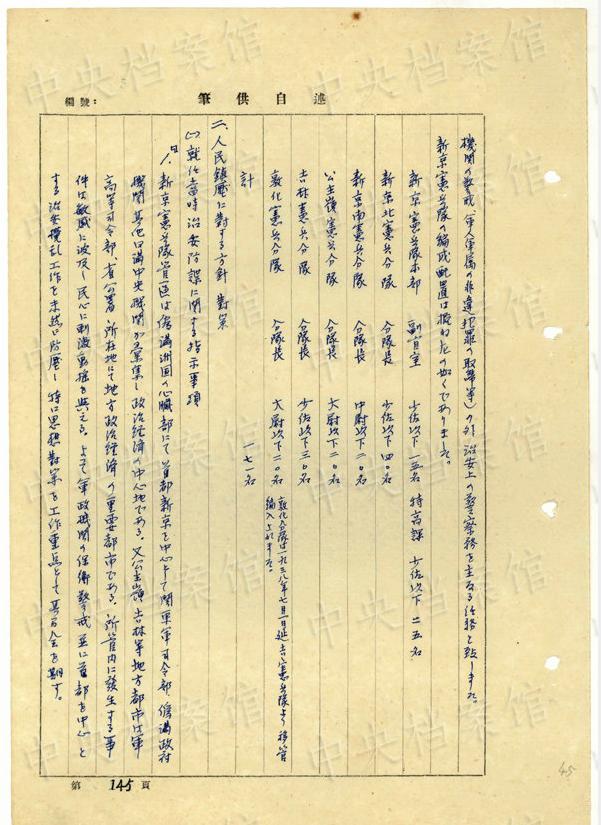 編號：
筆供自述
機関の警戒（軍人軍属の非違犯罪の取締等）の外治安上の警察務を主なる任務と致しました。
新京憲兵隊の編成配置は概ね左の如くでありました。
新京憲兵隊本部 副官室 少佐以下一五名 特高課 少佐以下二五名
新京北憲兵分隊 分隊長 少佐以下四〇名
新京南憲兵分隊 分隊長 中尉以下二〇名
公主嶺憲兵分隊 分隊長 大尉以下二〇名
吉林憲兵分隊 分隊長 少佐以下三〇名
敦化憲兵分隊 分隊長 大尉以下二〇名 敦化分隊は一九三八年七月一日延吉憲兵隊より移管
編入されました。
計 一七一名
二、人民鎮圧に対する方針対策
(一)就任当時治安防諜に関する指示事項
1. 新京憲兵隊管区は偽満洲国の心臓部にて首都新京を中心として関東軍司令部、偽満政府
機関其他日満中央機関が蝟集し政治経済の中心地である。又公主嶺吉林等地方都市は軍
高等司令部、省公署の所在地にて地方政治経済の重要都市である。所管内に発生する事
件は敏感に波及し民心に刺激動揺を与える。よって軍政機関の保衛警戒並に首都を中心と
する治安攪乱工作を未然に防圧し特に思想対策を工作重点として萬全を期す。
第145頁
45
中央档案馆